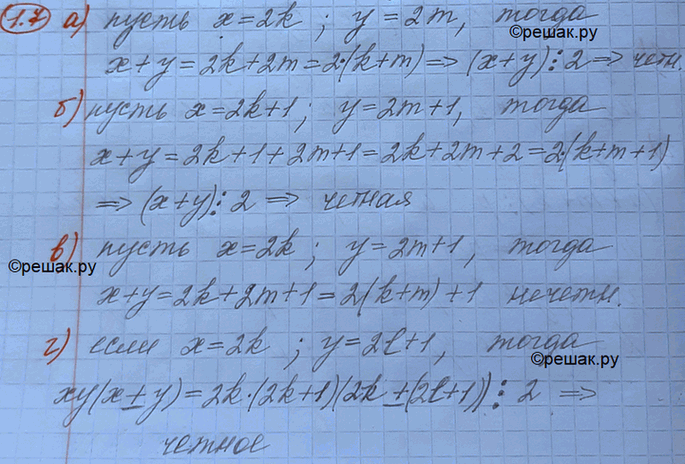 1.7 а) пусть x=2k ; y=2m, тогда
©решак.ру
x+y=2k+2m=2·(k+m) ⇒ (x+y)⋮2 ⇒ четн.
б) пусть x=2k+1; y=2m+1, тогда
x+y=2k+1+2m+1=2k+2m+2=2·(k+m+1)
⇒ (x+y)⋮2 ⇒ четная
в) пусть x=2k; y=2m+1, тогда
©решак.ру
x+y=2k+2m+1=2(k+m)+1 нечетн.
г) если x=2k ; y=2l+1, тогда
©решак.ру
xy(x±y)=2k·(2k+1)(2k±(2l+1))⋮2 ⇒
четное